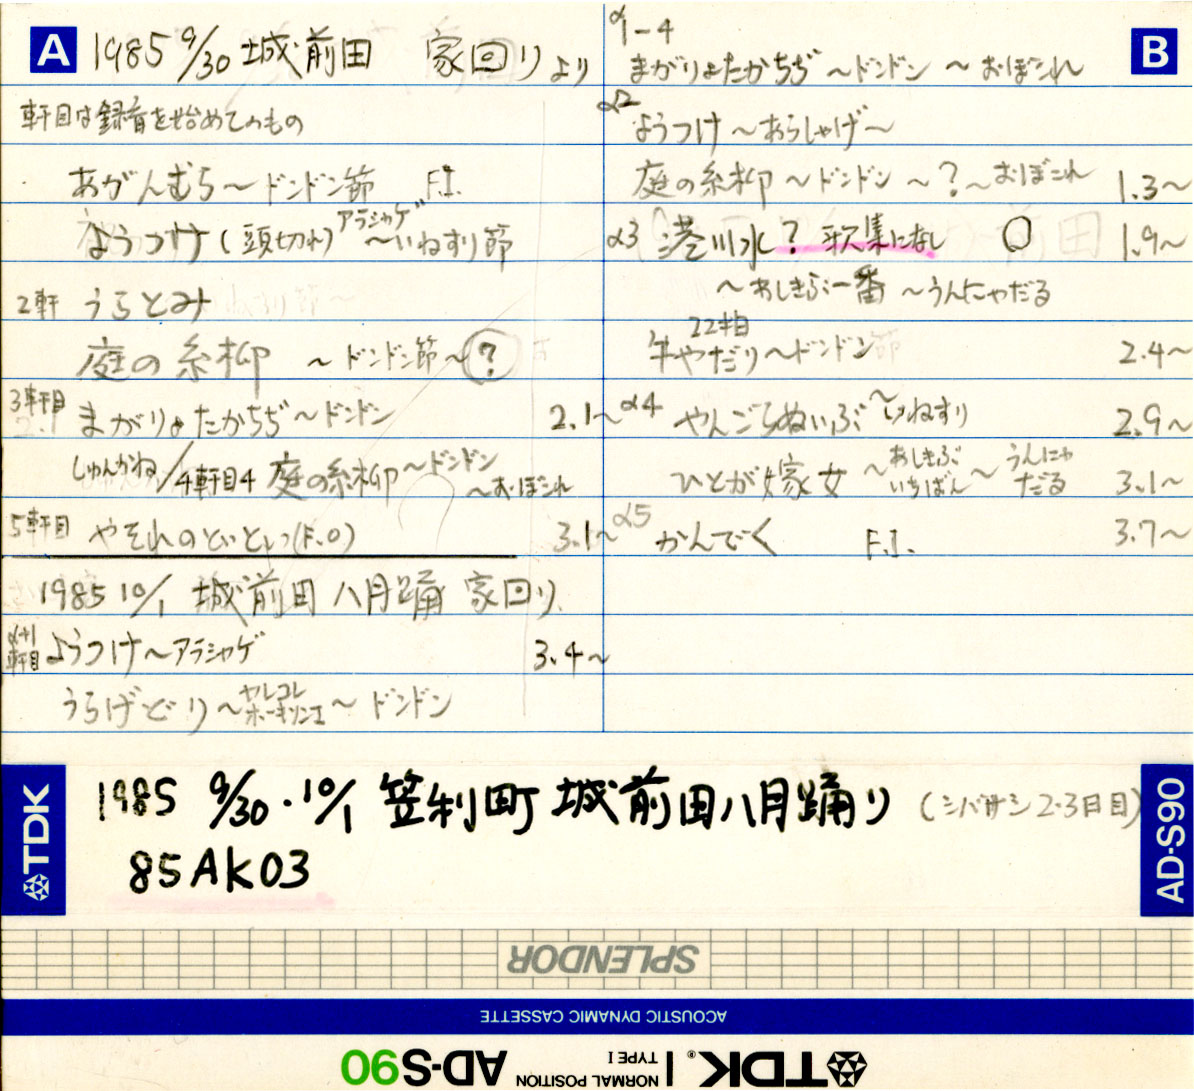 A 1985 9/30 城前田 家回り より
軒目は録音を始めてのもの
あがんむら〜ドンドン節 F.I.
ようつけ(頭切れ)アラシャゲ〜いねすり節
2軒 うらとみ
庭の糸柳 〜ドンドン節〜?
3軒目 まがりょたかちぢ〜ドンドン 2.1〜
しゅんかね/4軒目4 庭の糸柳〜ドンドン
〜おぼこれ
5軒目 やそれのどいとい(F.O) 3.1〜
1985 10/1 城前田 八月踊 家回り
軒目 ようつけ〜アラシャゲ 3.4〜
うらげどり〜ヤレコレ
ホーオリンエ〜ドンドン
B
α1-4
まがりょたかちぢ〜ドンドン〜おぼこれ
α2
ようつけ〜あらしゃげ〜
庭の糸柳〜ドンドン〜?〜おぼこれ 1.3〜
α3 港川水? 歌集になし ○ 1.9〜
〜あしきぶ一番〜うんにゃだる
22軒目
牛やだり〜ドンドン節 2.4〜
α4 やんごらぬいぶ〜いねすり 2.9〜
ひとが嫁女〜あしきぶ
いちばん〜うんにゃ
だる 3.1〜
α5 かんでく F.I. 3.7〜
TDK
1985 9/30・10/1 笠利町 城前田八月踊り (シバサシ2・3日目)
85AK03
AD-S90
SPLENDOR
ACOUSTIC DYNAMIC CASSETTE
TDK® TYPE I NORMAL POSITION AD-S90